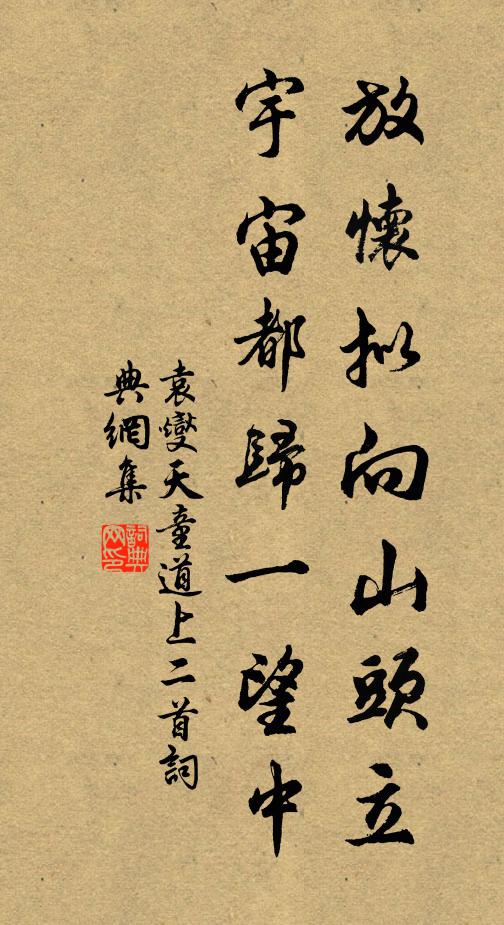 放懷擬向山頭立
宇宙都歸一望中
袁燮天童道上二首詞
典網集
詞典網印